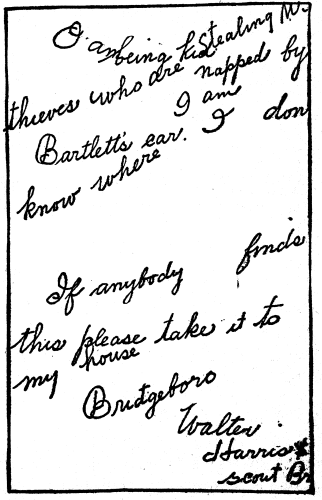 I am being kid Stealing Mr.
thieves who are napped by
I am
Bartlett's car. I don
know where
If anybody finds
this please take it to
my house
Bridgeboro
Walter
Harris
scout Br